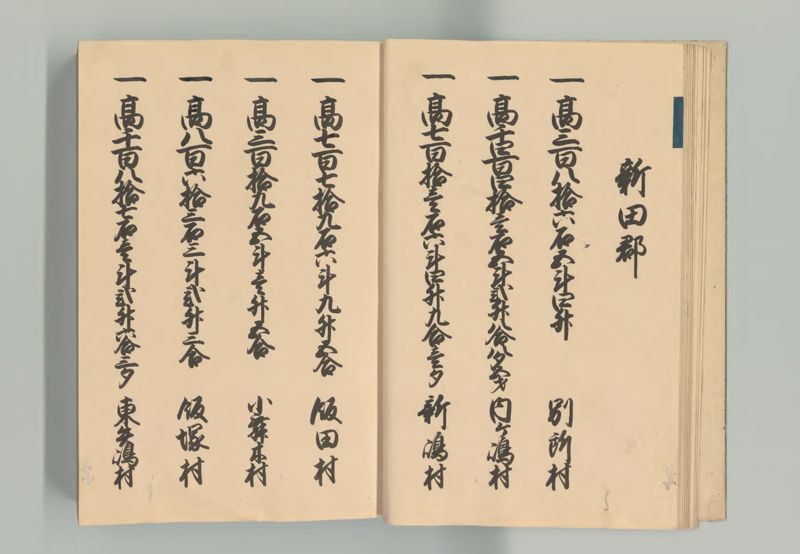 新田郡
一 高三百八拾六石五斗四升 別所村
一 高千四百四拾壱石五斗弐升八合八夕五才 内ケ嶋村
一 高七百拾壱石六斗四升九合壱夕 新嶋村
一 高七百七拾九石六斗九升五合 飯田村
一 高三百拾九石五斗壱升五合 小舞木村
一 高八百六拾三石三斗弐升三合 飯塚村
一 高千百八拾七石壱斗弐升六合三夕 東矢嶋村